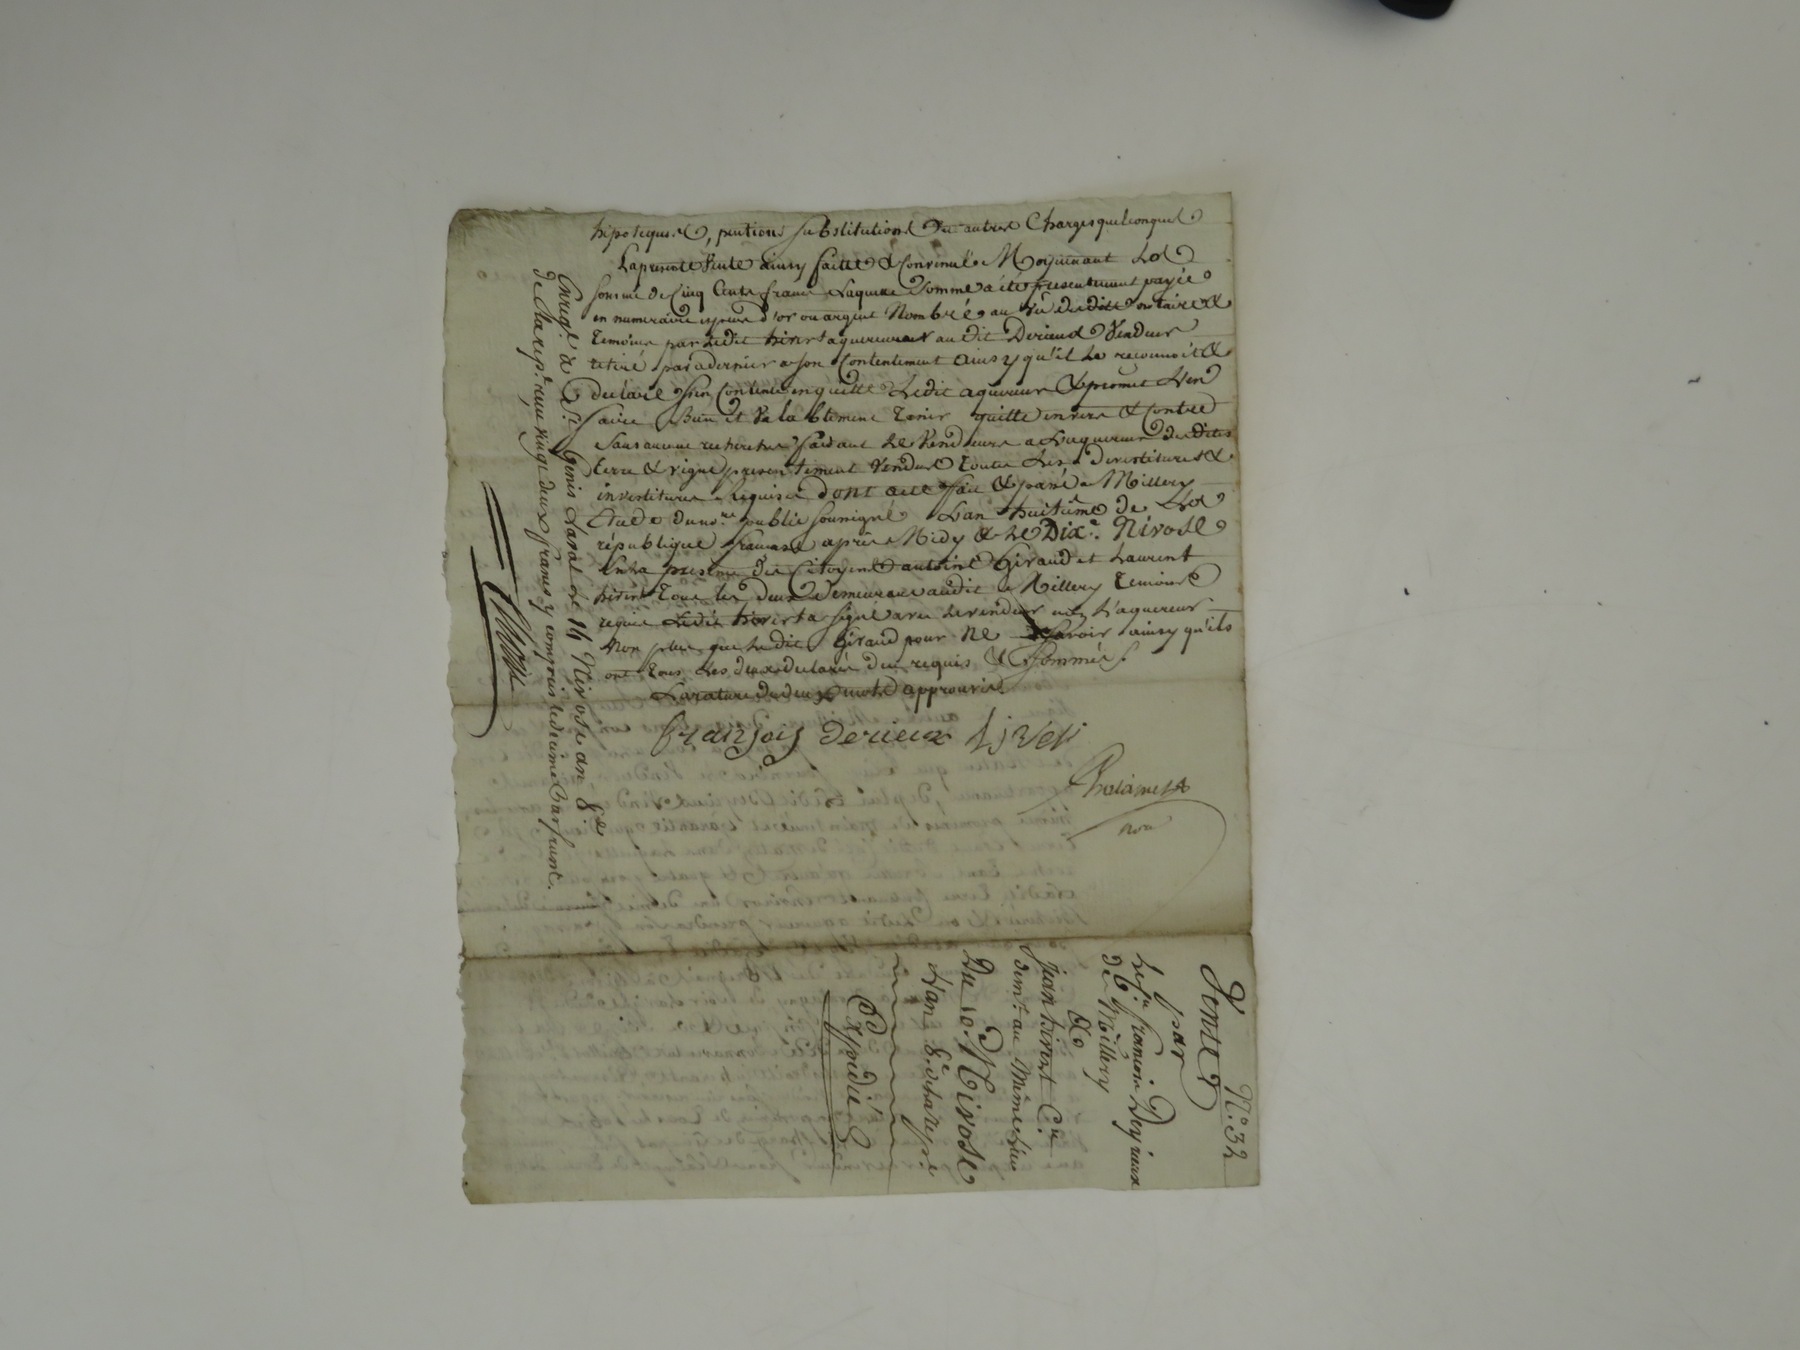 hipoteques, pentions substitutions ou autres Charges quelconques
La presente Vente ainsy faitte & Convenue Moyennant La
somme de Cinq Cents francs Laquelle Somme a été presentement payée
en numeraire especes d'or ou argent Nombrée au Vu dudit notaire &
temoins par Ledit hivert aquereur au dit Derieux Vendeur
retiré par a dernier a son Contentement ainsy qu'il Le reconnoit &
declare s'en Contente en quitte Ledit aquereur & promet L'en
faire Bien et Valablement Tenir quitte envers & Contre
sans aucune recherche faisant Le Vendeur a L'aquereur desdites
terre & vigne presentement Vendues toutes Les devestitures &
investitures Requises dont acte fait & passé a Millery
Etude du no.re public soussigné L'an huitième de La
république francaise après Midy & Le Dix.e Nivose
En la presence des Citoyens antoine Giraud et Laurent
tous Les deux demeurant audit Millery temoins
requis Ledit hivert a signé avec Le vendeur L'aquereur
Non plus que Ledit Giraud pour Ne Savoir ainsy qu'ils
ont tous Les deux declaré de ce requis & Sommés.
La rature de deux mots approuvée
franjois derieux
not
Enreg.é à S.t Genis Laval le 14 Nivose an 8.e
de La rep.e reçu vingt deux francs y compris le decime Par franc.
N.o 32
Vente
par
Le c.n francois Deyrieux
de Millery
à
jean hivert C.en
dem.t au même Lieu
Du 10 Nivose
L'an 8.e de la rep.e
Expedié